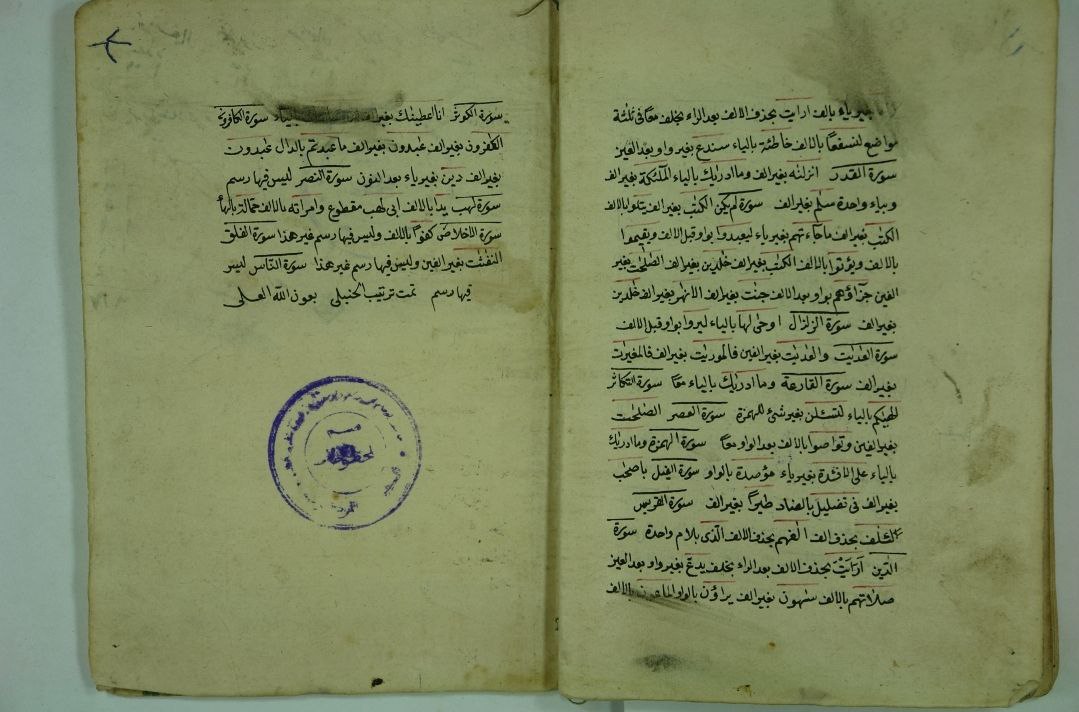 بغيرياء بالف ارايت بحذف الالف بعد الراء بخلف معًا في ثلثة
مواضع لنسفعًا بالالف خاطئة بالياء سندع بغير واو بعد العين
سورة القدر انزلنه بغير الف وما ادريك بالياء الملئكة بغير الف
وبياء واحدة سلم بغير الف سورة لم يكن الكتب بغير الف يتلوا بالالف
الكتب بغير الف ماجاءتهم بغير ياء ليعبدوا بواو قبل الالف ويقيموا
بالالف ويؤتوا بالالف الكتب بغير الف خلدين بغير الف الصلحت بغير
الفين جزآؤهم بواو بعد الالف جنت بغير الف الانهر بغير الف خلدين
بغير الف سورة الزلزال اوحى لها بالياء ليروا بواو قبل الالف
سورة العديت والعديت بغير الفين فالموريت بغير الف فالمغيرت
بغير الف سورة القارعة وما ادريك بالياء معًا سورة التكاثر
الهيكم بالياء لتسئلن بغير شئ للهمزة سورة العصر الصلحت
بغير الفين وتواصوا بالالف بعد الواو معًا سورة الهمزة وما ادريك
بالياء على الافئدة بغير ياء مؤصدة بالواو سورة الفيل باصحب
بغير الف في تضليل بالضاد طيرًا بغير الف سورة القريش
لئلف بحذف الف الفهم بحذف الالف الذى بلام واحدة سورة
الدين ارايت بحذف الالف بعد الراء بخلف يدع بغير واو بعد العين
صلاتهم بالالف ساهون بغير الف يراؤن بالواو الماعون بالالف
سورة الكوثر انا اعطينك بغير الف بالياء سورة الكافرون
الكفرون بغير الف عبدون بغير الف ما عبدتم بالدال عبدون
بغير الف دين بغير ياء بعد النون سورة النصر ليس فيها رسم
سورة لهب يدا بالالف ابى لهب مقطوع وامراته بالالف حمالة بالهاء
سورة الاخلاص كفوًا بالالف وليس فيها رسم غير هذا سورة الفلق
النفثت بغير الفين وليس فيها رسم غير هذا سورة الناس ليس
فيها رسم تمت ترتيب الحنبلى بعون الله العلى